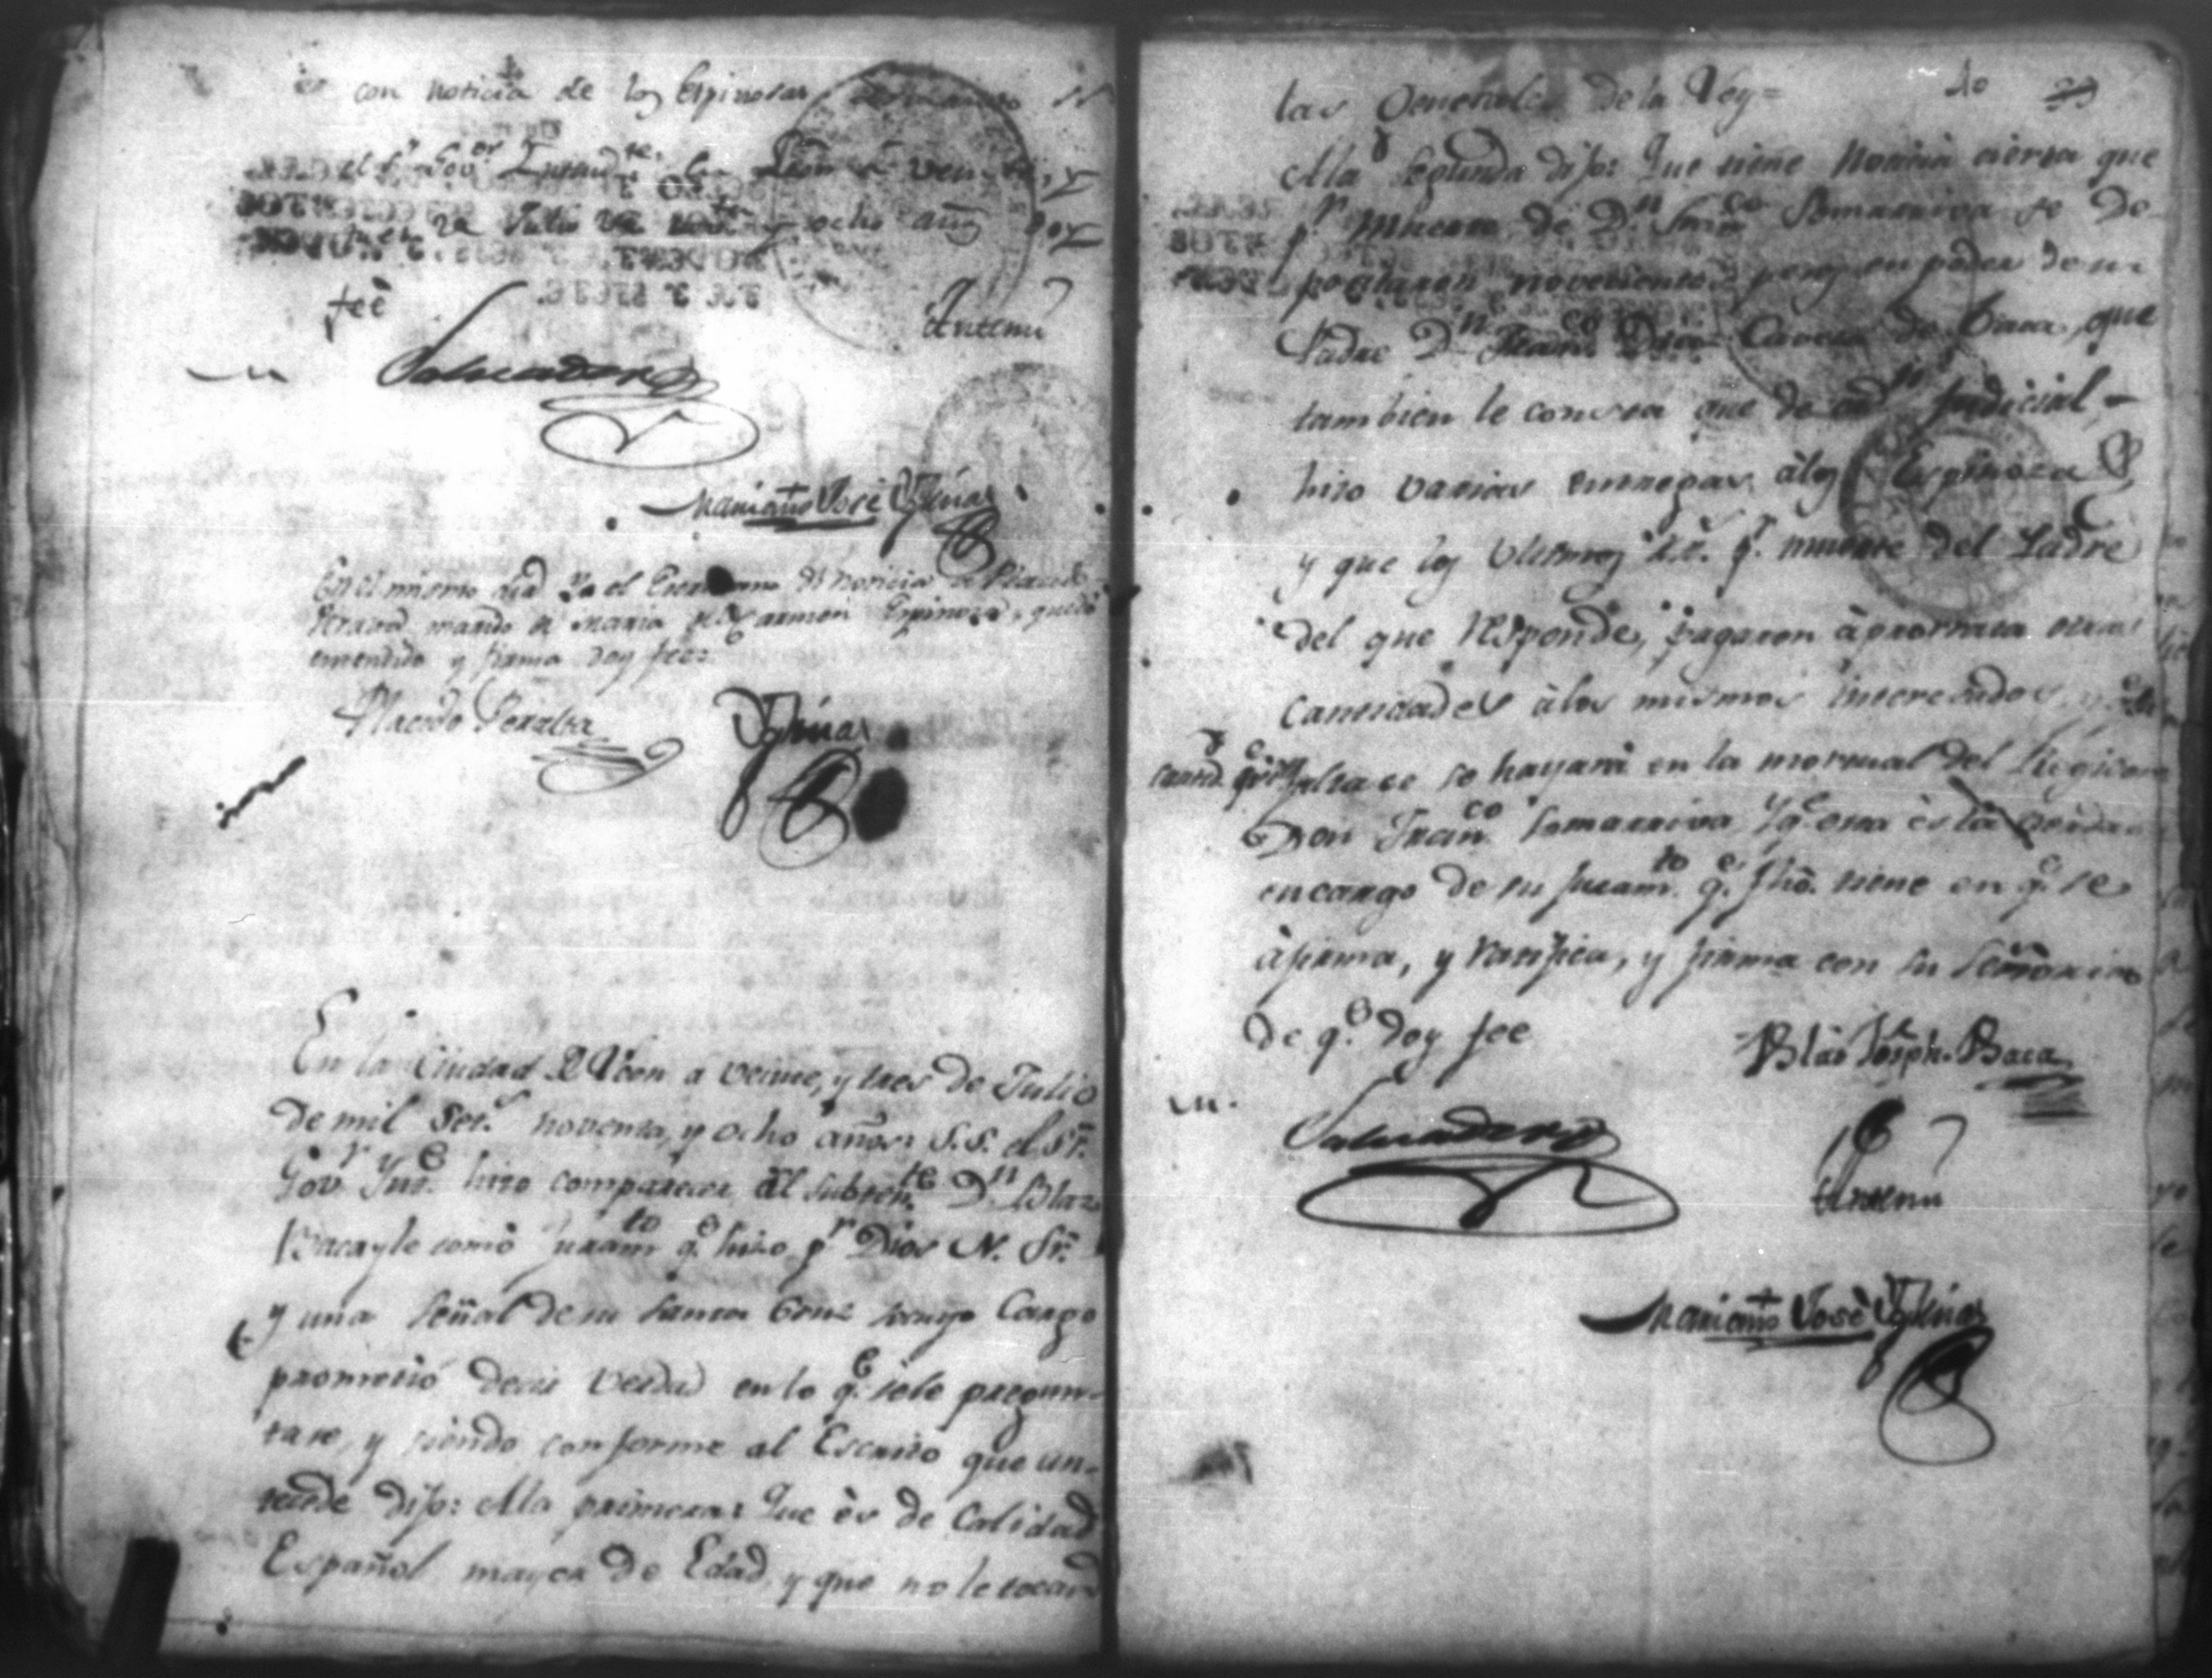 con noticia de los Espinosas
el Sr. Govor. Intendte. Leon à vente, y
en de Julio de novta. y ocho añ doy
feé
Salvador
Antemi
Mariano José Ygñas
En el mismo dia Yo el Escrivano di noticia a Placido
Peralta marido de Maria del Carmen Espinoza, quedó
entendido y firma doy feé
Placido Peralta
En la Ciudad de Leon a veinte, y tres de Julio
de mil Setr. noventa, y ocho años: S.S. el Sr.
Govr. Inte. hizo comparecer al Subtente. Dn. Blas
Baca y le tomo juramto. qe. hizo pr. Dios N. Sr.
y una señal de su Santa Cruz so cuyo Cargo
prometió decir verdad en lo qe. sele pregun-
tare, y siendo conforme al Escrito que an-
tecede dijo: Ala primera: Que és de Calidad
Español mayor de Edad, y que no le tocan
las Generales de la Ley= 10
Ala segunda dijo: Que tiene noticia cierta que
pr. muerte de Dn. Franco. Somarriva se de-
positaron novecientos pesos en poder de su
Padre Dn. Cavesa de Baca, que
tambien le consta que de ordn. Judicial
hizo varias entregas álos Espinoza
y que los Ultimos pr. muerte del Padre
del que responde, pagaron à prorrata otras
cantidades à los mismos interesados
se hayará en la mortual del Regidor
Don Franco. Somarriva, y qe. esta és la verdad
en cargo de su juramto. qe. fho. tiene en qe. se
àfirma, y ratifica, y firma con su Señoria
de qe. doy fee
Blas Josph. Baca
Salvador
Antemi
Mariano José Ygñas